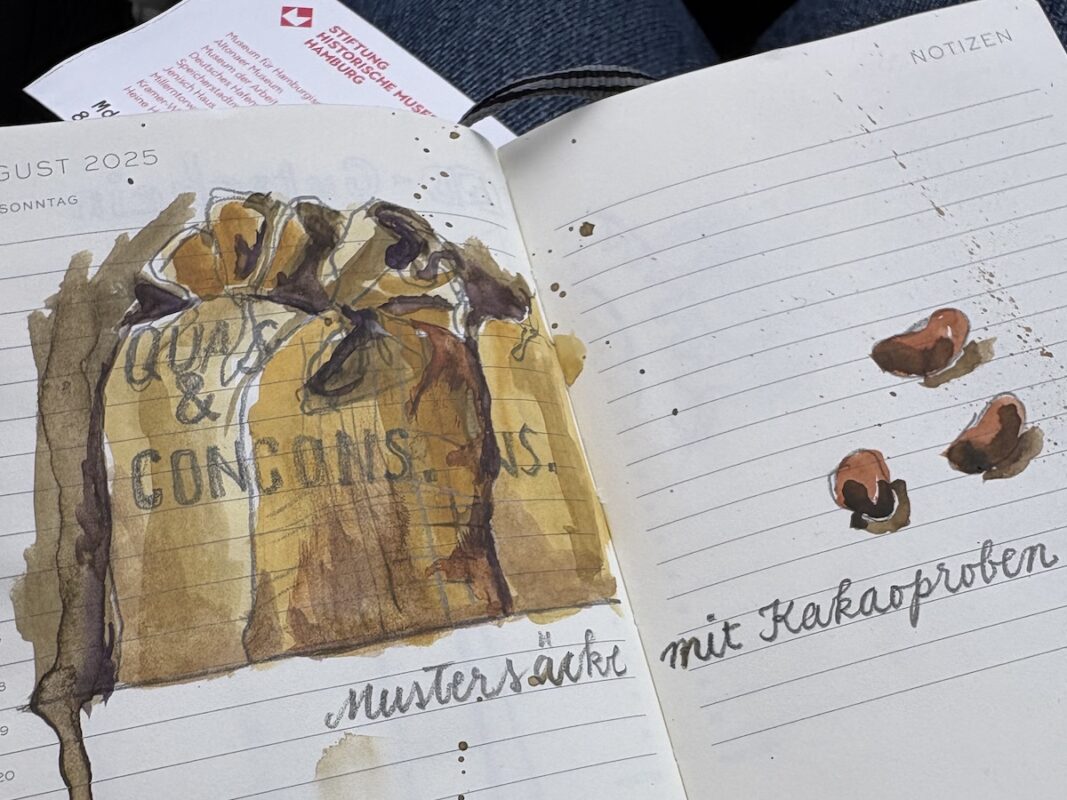 STIFTUNG
HISTORISCHE MUSE
HAMBURG
Museum für Hamburgis
Altonaer Museum
Museum der Arbeit
Deutsches Hafen
Speicherstadtm
Jenisch Haus
Millerntorw
Kramer-W
Heine H
GUST 2025
SONNTAG
QUAS
&
CONCONS. NS.
Mustersäcke
8
9
20
NOTIZEN
mit Kakaoproben